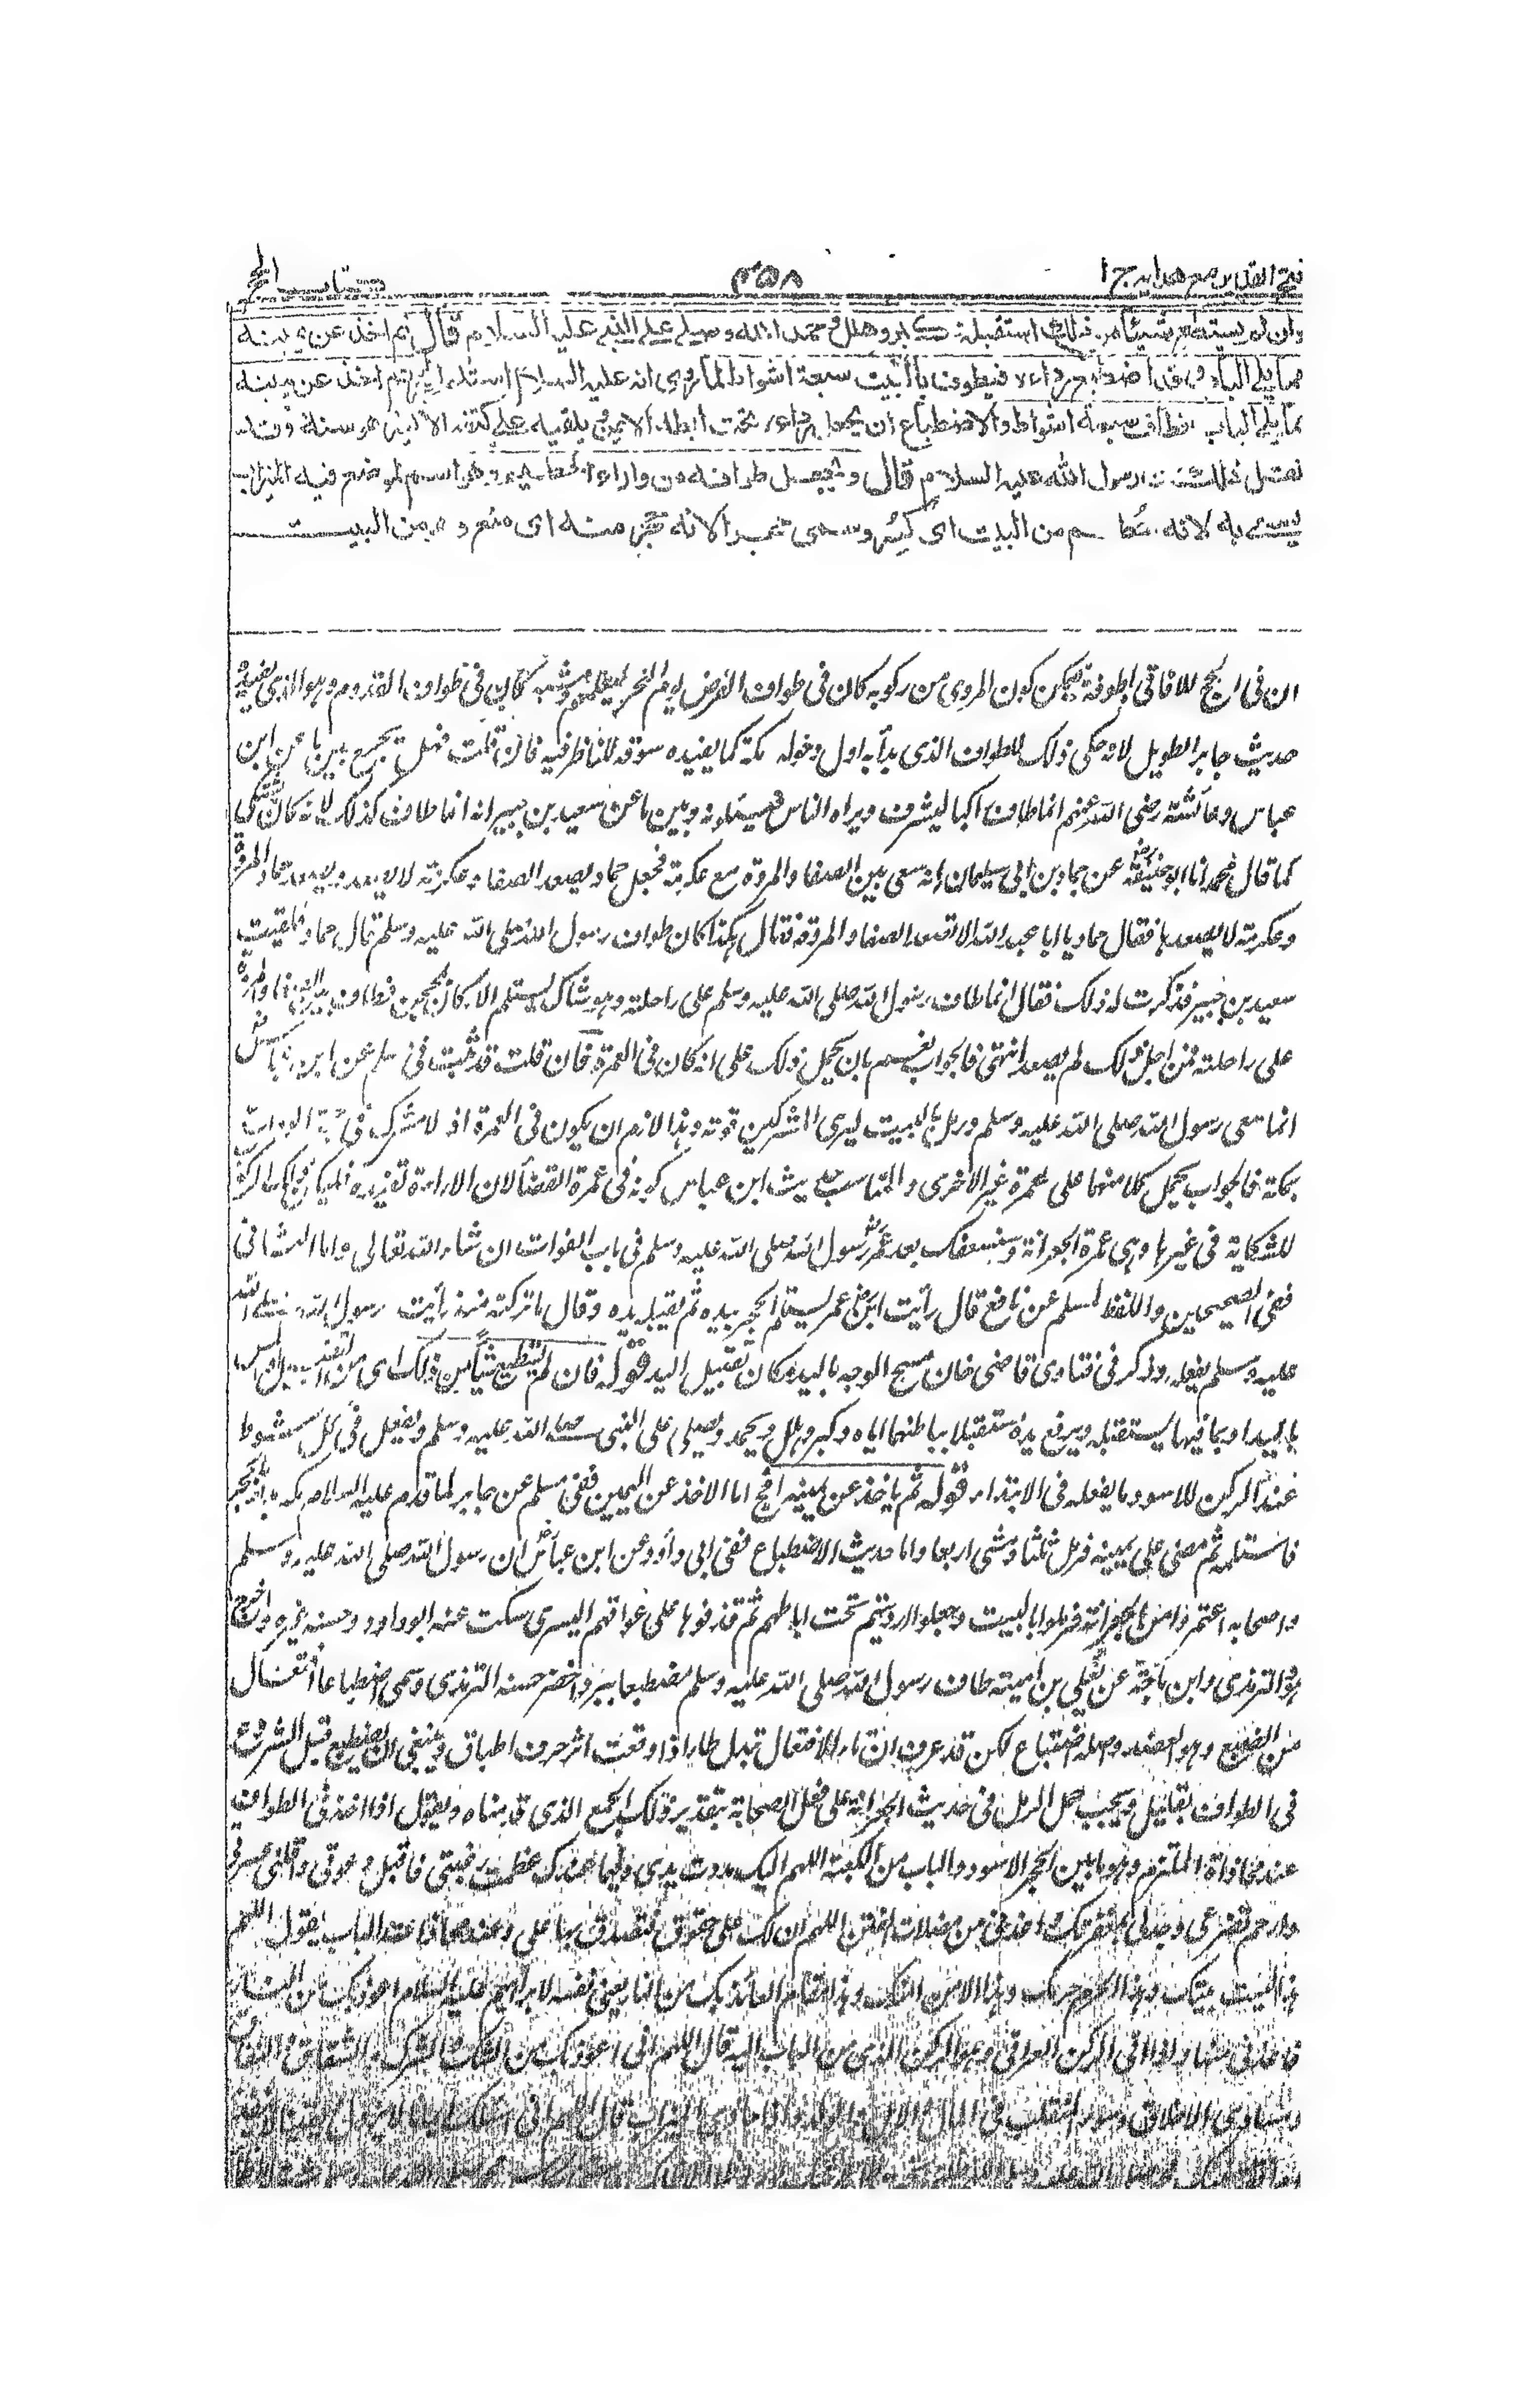 فتح القدير مع هدايه ج ا ٣٥٨ كتاب الحج
وان لم يستطع شيئا من ذلك استقبله وكبر وهلل وحمد الله وصلى على النبي عليه السلام قال ثم اخذ عن يمينه
مما يلى الباب وقد اضطبع رداءه فيطوف بالبيت سبعة اشواط لما روي انه عليه السلام استلم الحجر ثم اخذ عن يمينه
مما يلى الباب فطاف سبعة اشواط والاضطباع ان يجعل رداءه تحت ابطه الايمن ويلقيه على كتفه الايسر هو سنة وقد
نقل ذلك عن رسول الله عليه السلام قال ويجعل طوافه من وراء الحطيم وهو اسم لموضع فيه الميزاب
يسمى به لانه حطم من البيت اى كسر وسمى حجرا لانه حجر منه اى منع وهو من البيت
ان فى الحج للآفاقى اطوفة فيمكن كون المروى من ركوبه كان فى طواف الفرض يوم النحر ليعلمهم ومشيه كان فى طواف القدوم وهو الذى يفيده
حديث جابر الطويل لانه حكى ذلك الطواف الذى بدأ به اول دخوله مكة كما يفيده سوقه للناظر فيه فان قلت فهل يجمع بين ما عن ابن
عباس وعائشة رضى الله عنهم انما طاف راكبا ليشرف ويراه الناس فيسئلونه وبين ما عن سعيد بن جبير انه انما طاف كذلك لانه كان يشتكى
كما قال محمد انا ابو حنيفة عن حماد بن ابى سليمان انه سعى بين الصفا والمروة مع عكرمة فجعل حماد يصعد الصفا وعكرمة لا يصعد ويصعد حماد المروة
وعكرمة لا يصعدها فقال حماد يا ابا عبد الله الا تصعد الصفا والمروة فقال هكذا كان طواف رسول الله صلى الله عليه وسلم قال حماد فلقيت
سعيد بن جبير فذكرت له ذلك فقال انما طاف رسول الله صلى الله عليه وسلم على راحلته وهو شاك يستلم الاركان بمحجن فطاف بين الصفا والمروة
على راحلته فمن اجل ذلك لم يصعد انتهى فالجواب نعم بان يحمل ذلك على انه كان فى العمرة فان قلت قد ثبت فى مسلم عن ابن عباس
انما سعى رسول الله صلى الله عليه وسلم ورمل بالبيت ليرى المشركين قوته وهذا لازم ان يكون فى العمرة اذ لا مشرك فى حجة الوداع
بمكة فالجواب يحمل كل منهما على عمرة غير الاخرى والمناسب لحديث ابن عباس كونه فى عمرة القضاء لان الاراءة تفيده فليكن ذلك الركوب
للشكاية فى غيرها وهى عمرة الجعرانة وسنسعفك بعد عمر رسول الله صلى الله عليه وسلم فى باب الفوات ان شاء الله تعالى واما الثانى
ففى الصحيحين واللفظ لمسلم عن نافع قال رأيت ابن عمر يستلم الحجر بيده ثم يقبل يده وقال ما تركته منذ رأيت رسول الله صلى الله
عليه وسلم يفعله وذكر فى فتاوى قاضى خان مسح الوجه باليد مكان تقبيل اليد قوله فان لم يستطع شيأ من ذلك اى من التقبيل والمس
باليد او بما فيها يستقبله ويرفع يديه مستقبلا بباطنهما اياه وكبر وهلل ويحمد ويصلى على النبى صلى الله عليه وسلم ويفعل فى كل شوط
عند الركن الاسود ما يفعله فى الابتداء قوله ثم ياخذ عن يمينه الخ اما الاخذ عن اليمين ففى مسلم عن جابر لما قدم عليه السلام مكة بدأ بالحجر
فاستلمه ثم مضى على يمينه فرمل ثلثا ومشى اربعا واما حديث الاضطباع ففى ابى داود عن ابن عباس ان رسول الله صلى الله عليه وسلم
واصحابه اعتمروا من الجعرانة فرملوا بالبيت وجعلوا ارديتهم تحت اباطهم ثم قذفوها على عواتقهم اليسرى سكت عنه ابو داود وحسنه غيره واخرج
هو والترمذى وابن ماجة عن يعلى بن امية طاف رسول الله صلى الله عليه وسلم مضطبعا ببرد اخضر حسنه الترمذى وسمى اضطباعا افتعال
من الضبع وهو العضد واصله اضتباع لكن قد عرف ان تاء الافتعال تبدل طاء اذا وقعت اثر حرف اطباق وينبغى ان يضطبع قبل الشروع
فى الطواف بقليل ويجب حمل الرمل فى حديث الجعرانة على فعل الصحابة بتقدير ذلك الجمع الذى قدمناه ويقول اذا اخذ فى الطواف
عند محاذاة الملتزم وهو ما بين الحجر الاسود والباب من الكعبة اللهم اليك مددت يدى وفيما عندك عظمت رغبتى فاقبل دعوتى واقلنى عثرتى
وارحم تضرعى وجد لى بمغفرتك واعذنى من مضلات الفتن اللهم ان لك على حقوقا فتصدق بها على وعند محاذاة الباب يقول اللهم
هذا البيت بيتك وهذا الحرم حرمك وهذا الامن امنك وهذا مقام العائذ بك من النار يعنى نفسه لا ابراهيم عليه السلام اعوذ بك من النار
فاعذنى منها واذا اتى الركن العراقى وهو الركن الذى من الباب اليه قال اللهم انى اعوذ بك من الشك والشرك والشقاق والنفاق
ومساوى الاخلاق وسوء المنقلب فى المال والاهل والولد واذا حاذى الميزاب قال اللهم انى اسئلك ايمانا لا يزول ويقينا لا ينفد